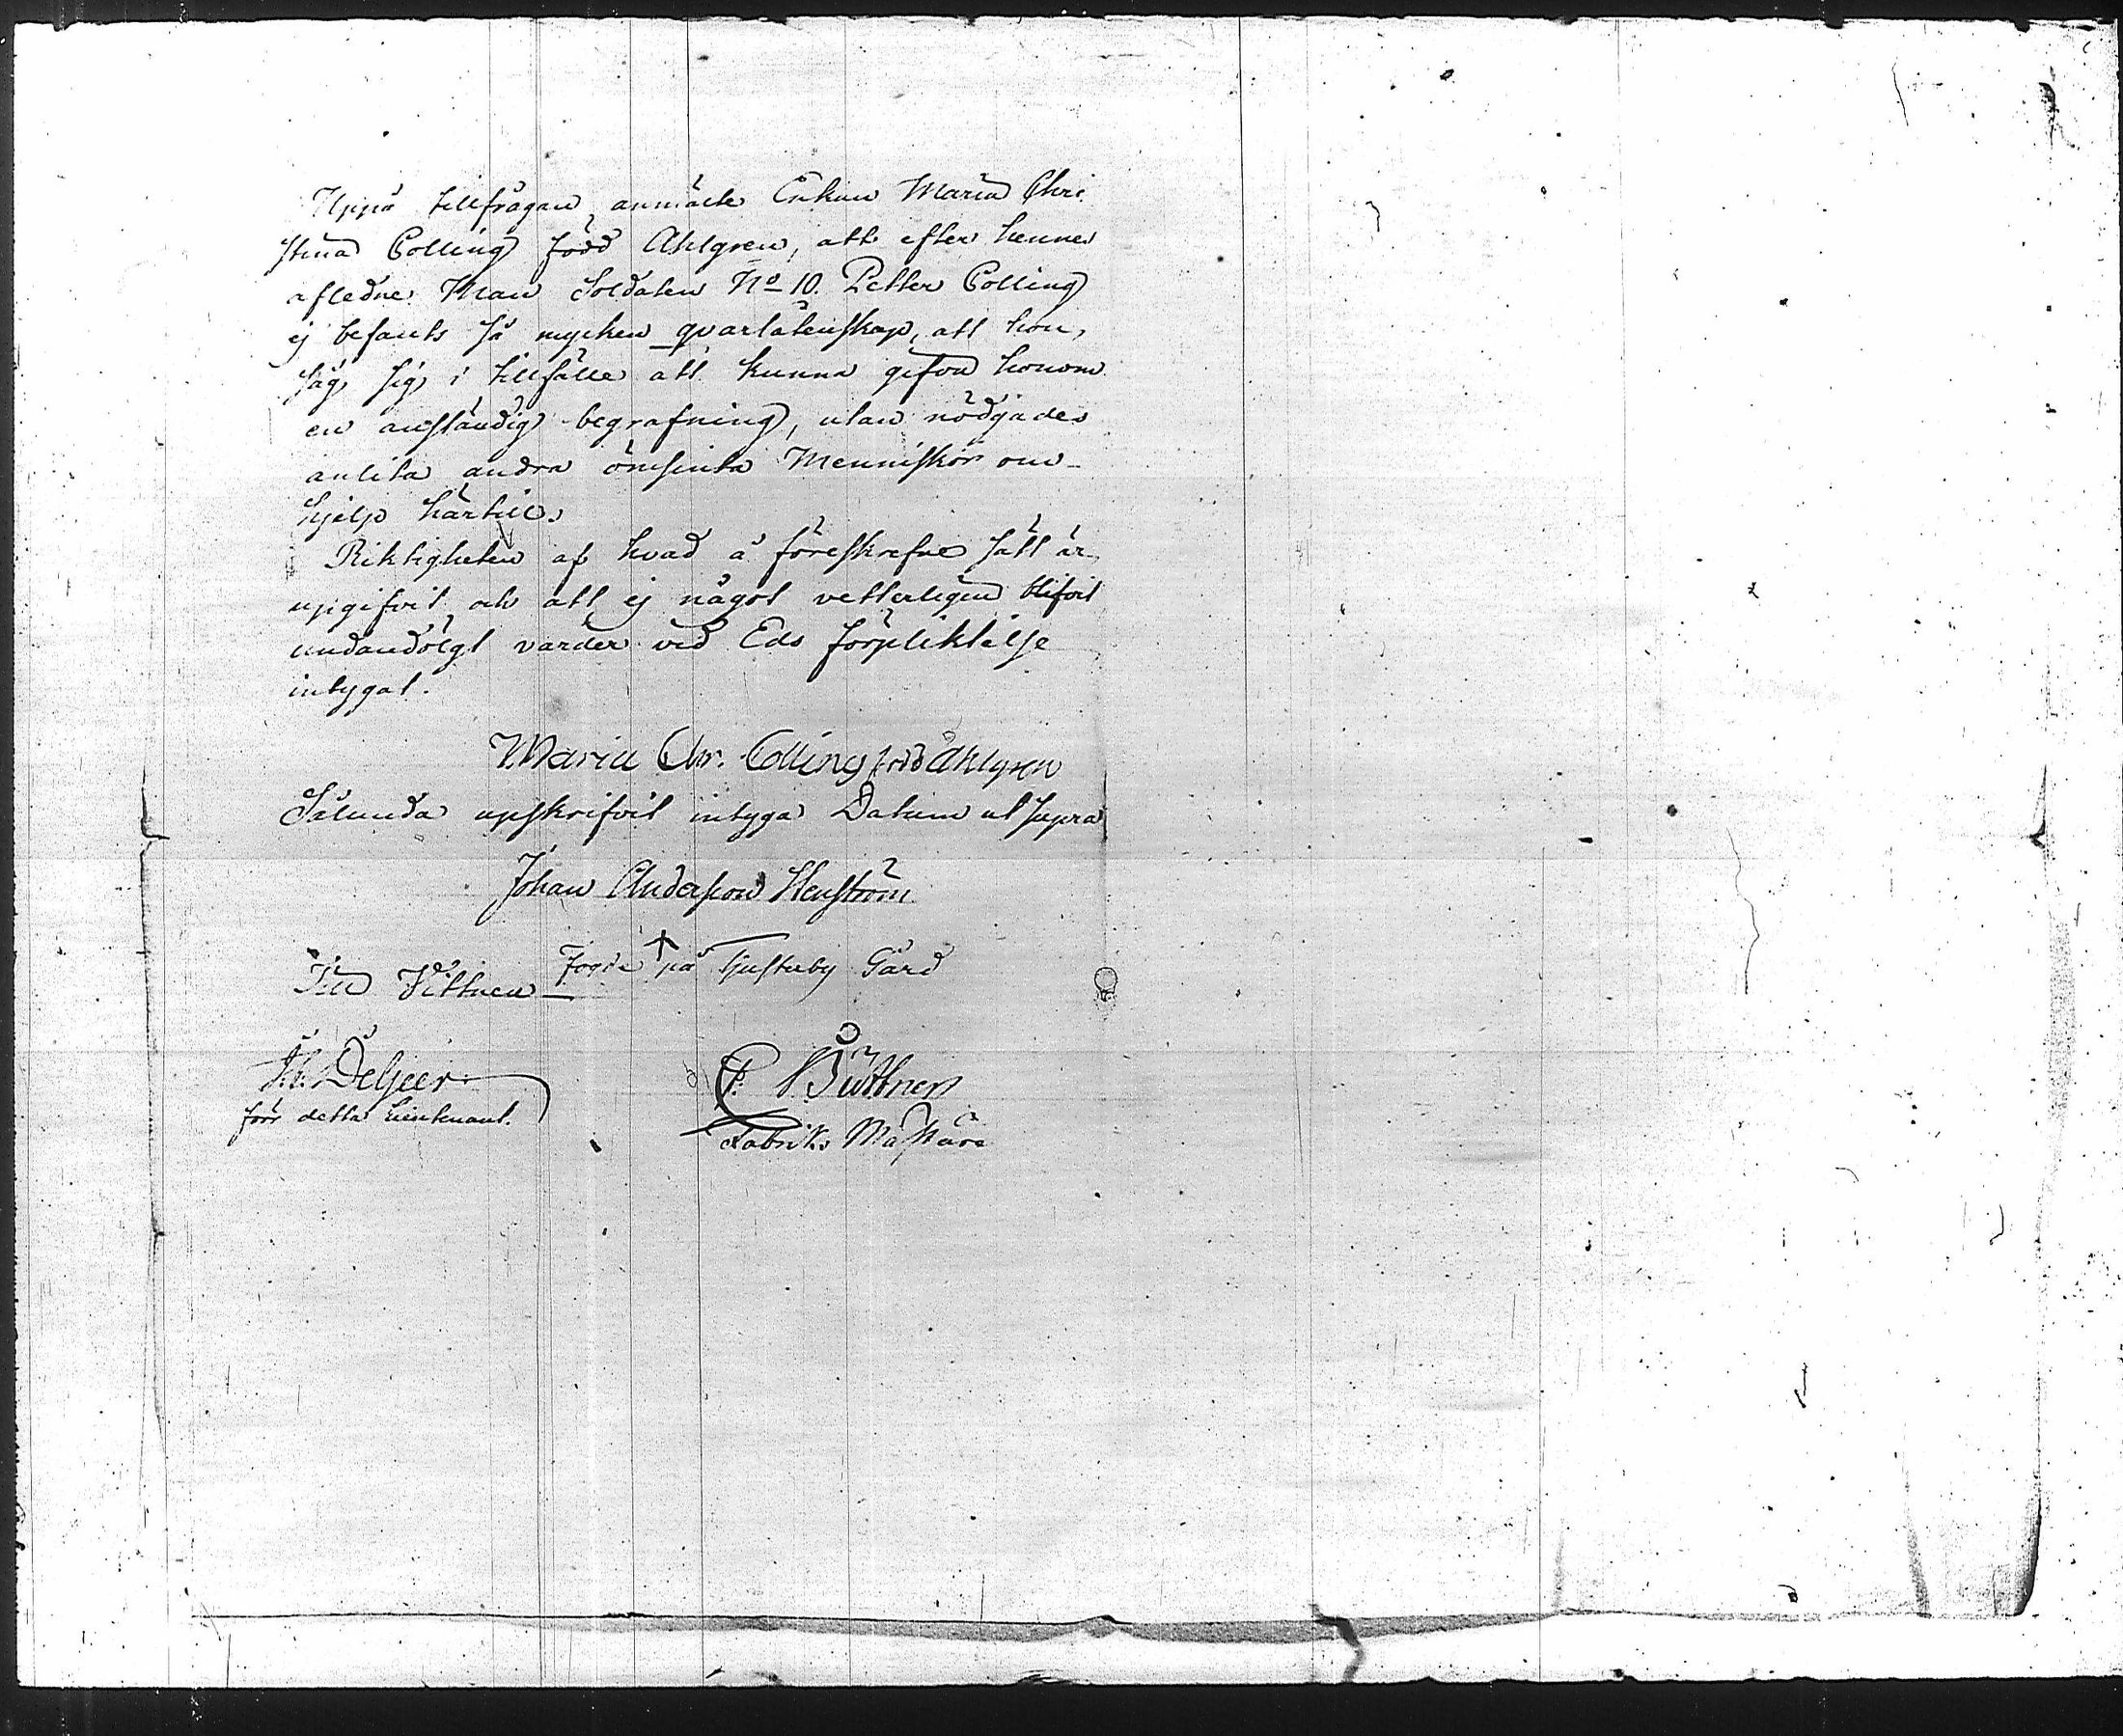 Uppå tillfrågan anmälte Enkan Maria Chri
stina Colling född Ahlgren, att efter hennes
afledne Man Soldaten No 10. Petter Colling
ej befants så mycken qvarlåtenskap, att hon,
såg sig i tillfälle att kunna gifva honom
en anständig begrafning, utan nödgades
anlita andra ömsinta Menniskor om
hjelp härtill.
Riktigheten af hvad å föreskrefne sätt är
upgifvit och att ej något vetterligen blifvit
undandölgt varder vid Eds förpliktelse
intygat.
Maria Chr. Colling född Ahlgren
Sålunda upskrifvit intyga Datum ut supra
Johan Andersson Stenström
Fogde på Tjusterby Gård
Till Vittnen
DeGeer
förr detta Lieutenant.
P. Büttner
Fabriks Mästare